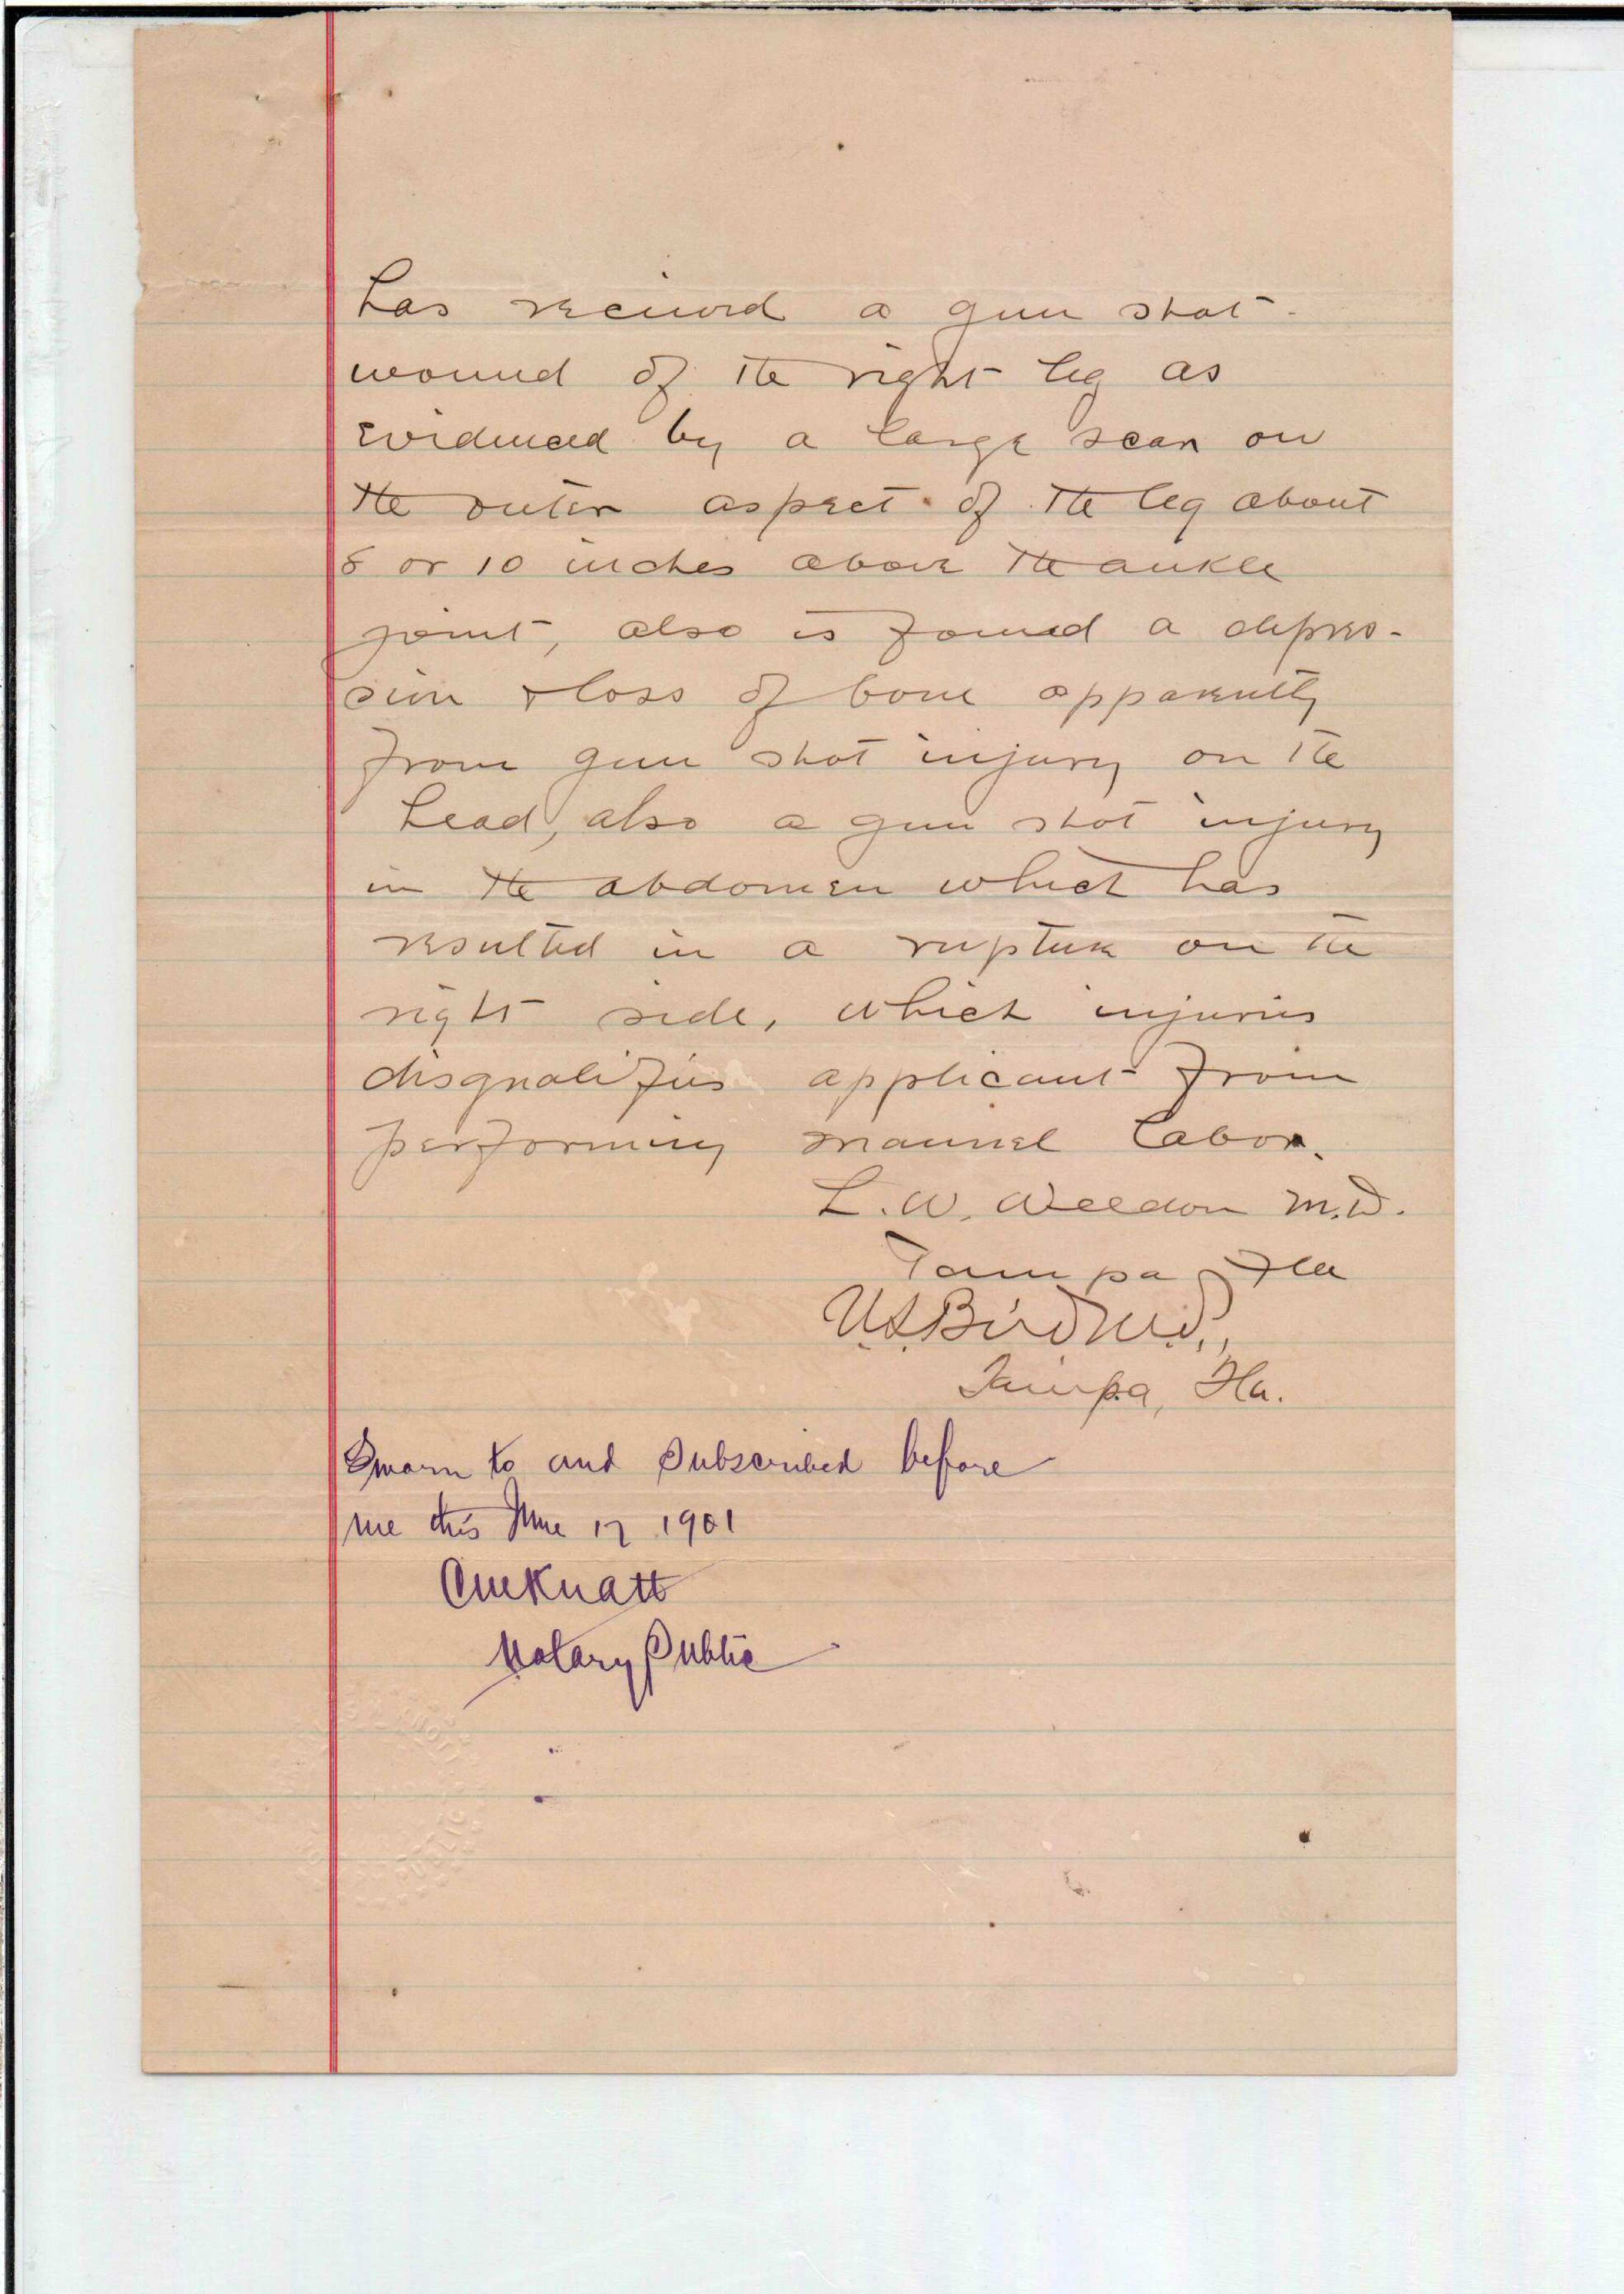 has received a gun shot
wound of the right leg as
evidenced by a large scar on
the outer aspect of the leg about
8 or 10 inches above the ankle
joint, also is found a depres-
sion & loss of bone apparently
from gun shot injury on the
head, also a gun shot injury
in the abdomen which has
resulted in a rupture on the
right side, which injuries
disqualifies applicant from
performing manual labor.
L. W. Weedon M.D.
Tampa Fla
U.S. Bird M.D.,
Tampa, Fla.
Sworn to and Subscribed before
me this June 17 1901
Notary Public
PUBLIC